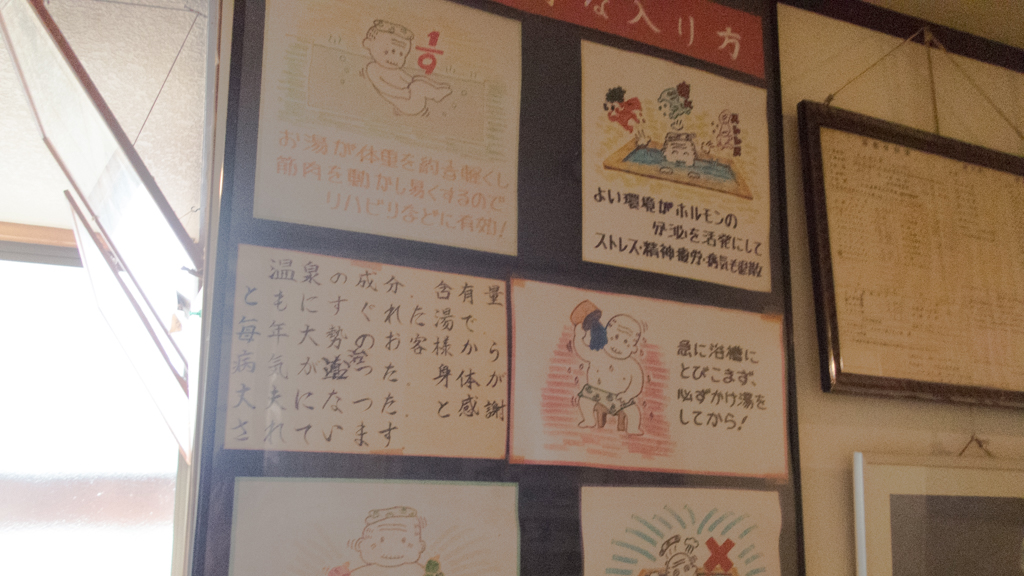 な入り方
1/9
お湯が体重を約1/9に軽くし
筋肉を動かし易くするので
リハビリなどに有効!
よい環境がホルモンの
分泌を活発にして
ストレス・精神疲労・病気も退散
温泉の成分、含有量
ともにすぐれた湯で、
毎年大勢のお客様から
病気が治った、身体が
丈夫になった、と感謝
されています
急に浴槽に
とびこまず、
必ずかけ湯を
してから!